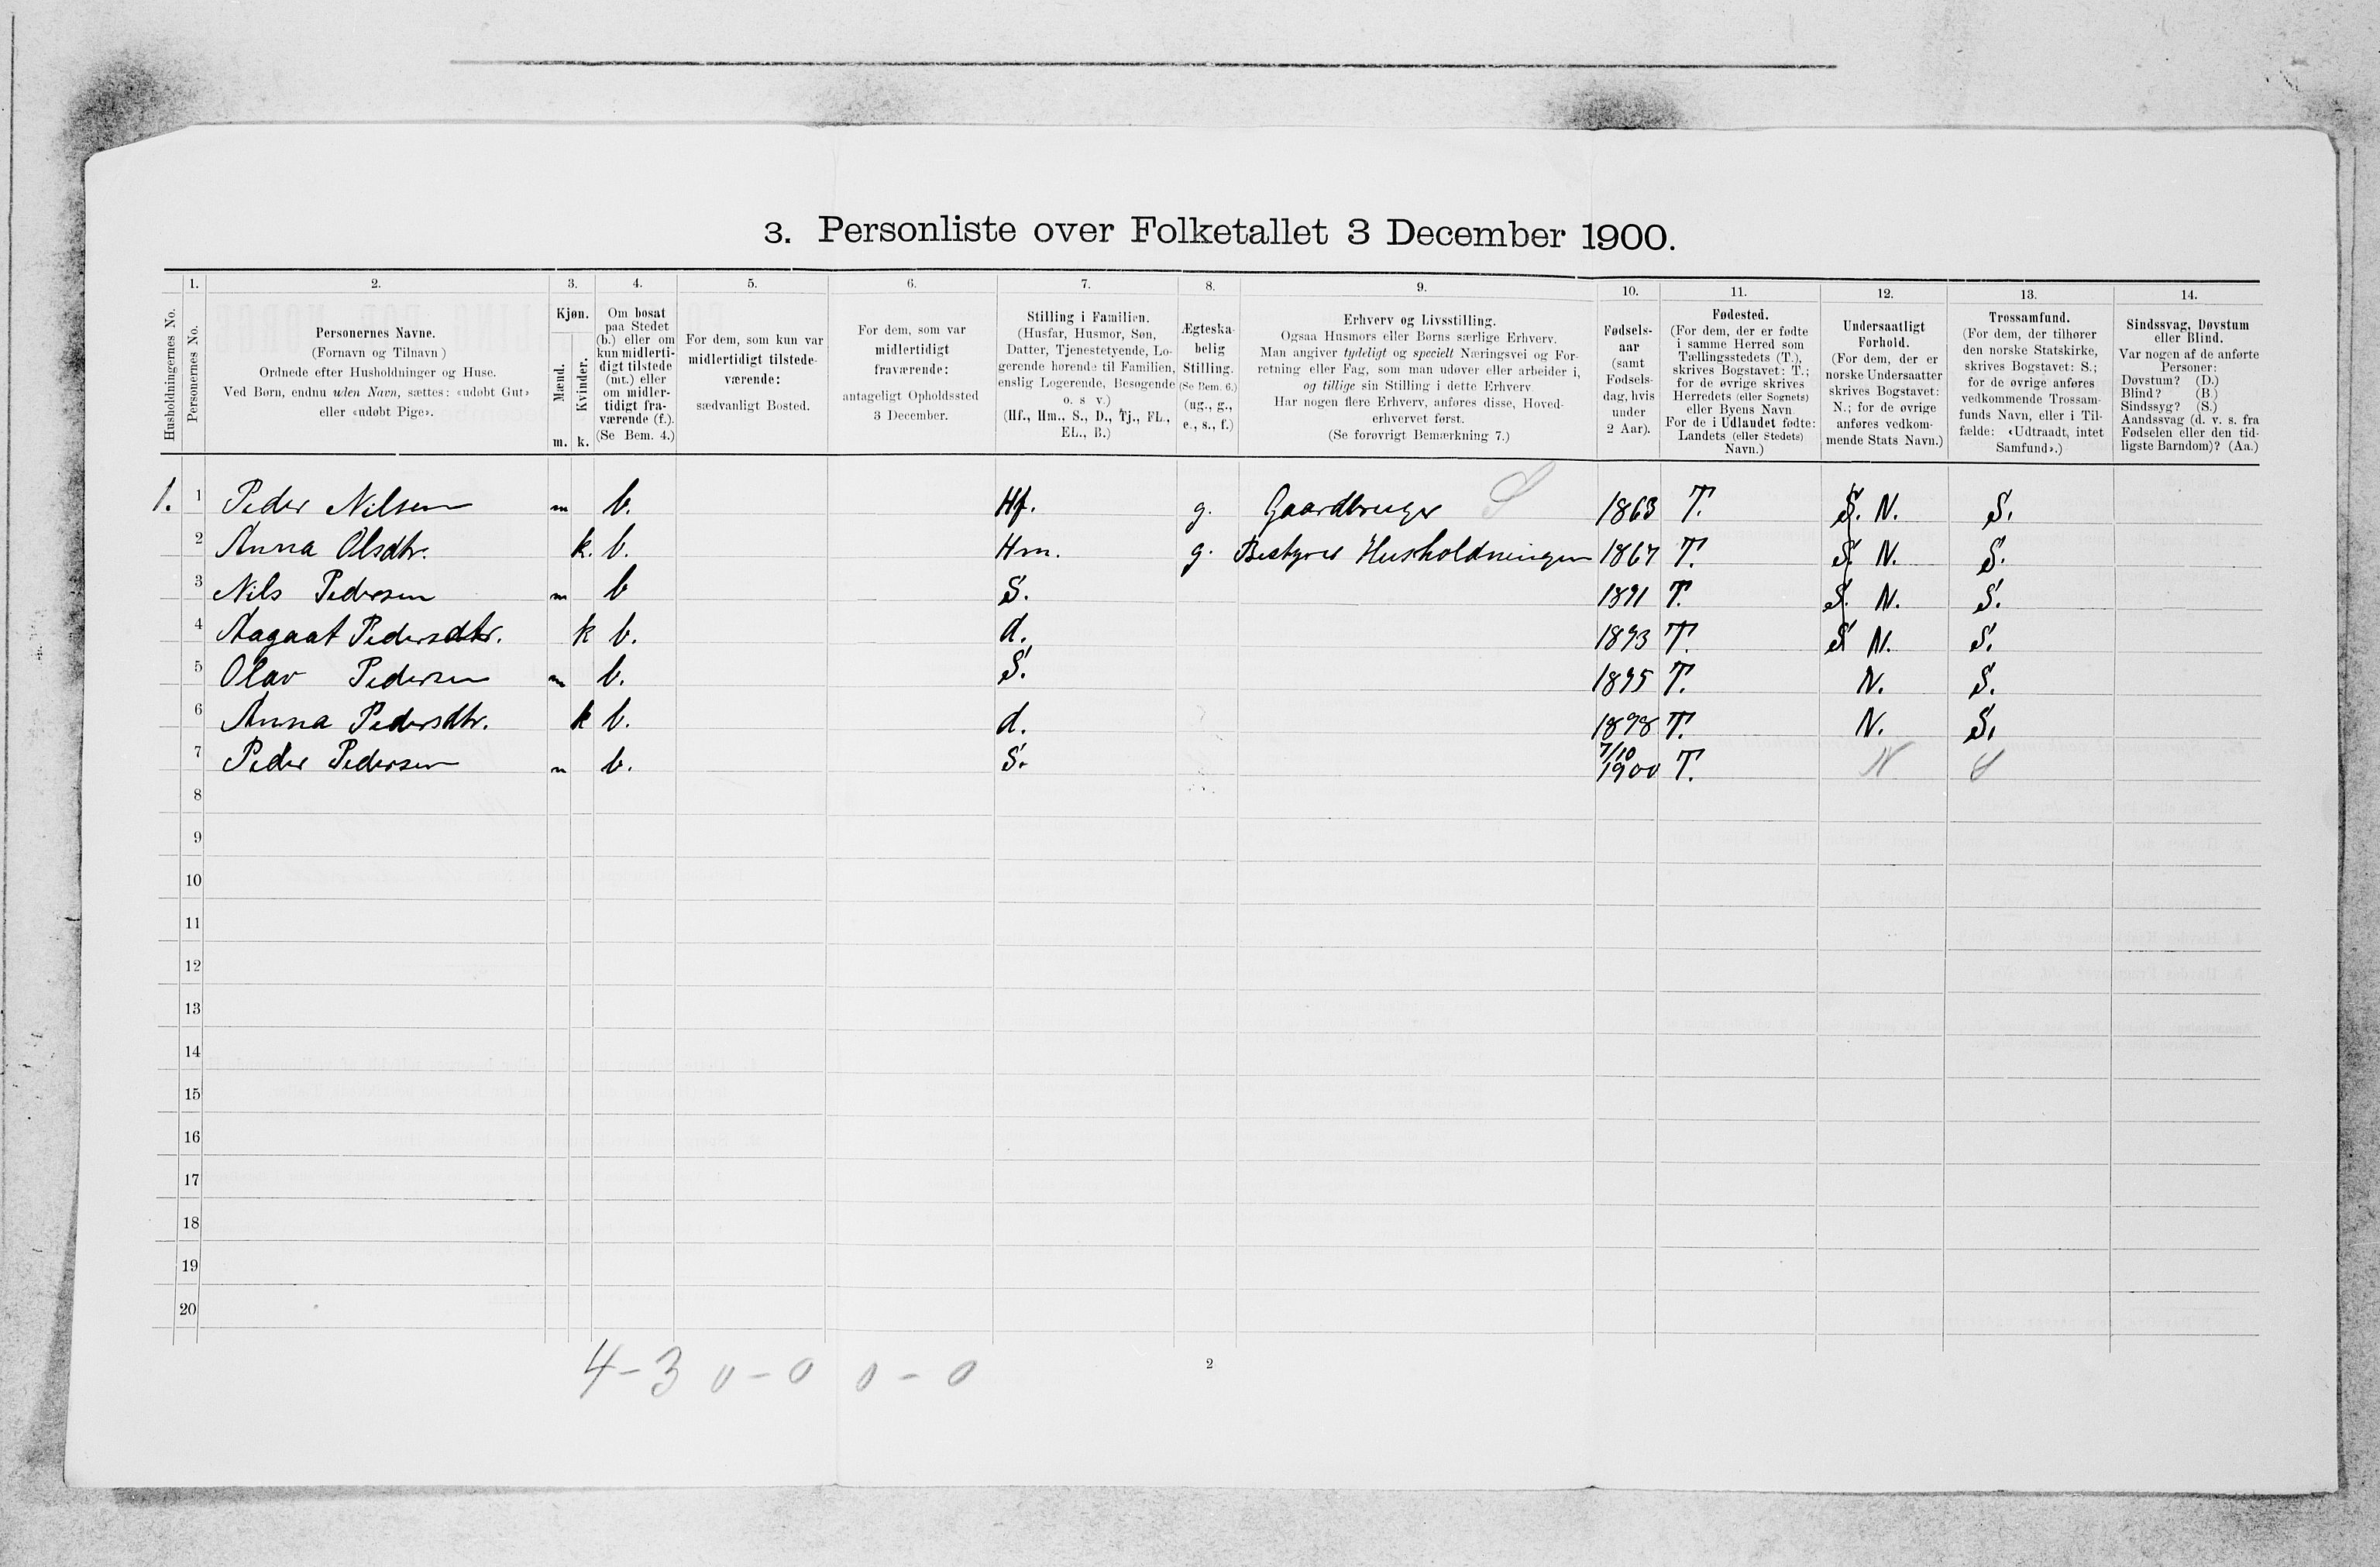 3. Personliste over Folketallet 3 December 1900.
Husholdningernes No.
1.
Personernes No.
2.
Personernes Navne.
(Fornavn og Tilnavn)
Ordnede efter Husholdninger og Huse.
Ved Børn, endnu uden Navn, sættes: «udøbt Gut»
eller «udøbt Pige».
3.
Kjøn.
Mænd.
Kvinder.
m. k.
4.
Om bosat
paa Stedet
(b.) eller om
kun midlerti-
digt tilstede
(mt.) eller
om midler-
tidigt fra-
værende (f.).
(Se Bem. 4.)
5.
For dem, som kun var
midlertidigt tilstede-
værende:
sædvanligt Bosted.
6.
For dem, som var
midlertidigt
fraværende:
antageligt Opholdssted
3 December.
7.
Stilling i Familien.
(Husfar, Husmor, Søn,
Datter, Tjenestetyende, Lo-
gerende hørende til Familien,
enslig Logerende, Besøgende
o. s v.)
(Hf., Hm., S., D., Tj., FL.,
EL., B.)
8.
Ægteska-
belig
Stilling.
(Se Bem. 6.)
(ug., g.,
e., s., f.)
9.
Erhverv og Livsstilling.
Ogsaa Husmors eller Børns særlige Erhverv.
Man angiver tydeligt og specielt Næringsvei og For-
retning eller Fag, som man udøver eller arbeider i,
og tillige sin Stilling i dette Erhverv.
Har nogen flere Erhverv, anføres disse, Hoved-
erhvervet først.
(Se forøvrigt Bemærkning 7.)
10.
Fødsels-
aar
(samt
Fødsels-
dag, hvis
under
2 Aar).
11.
Fødested.
(For dem, der er fødte
i samme Herred som
Tællingsstedets (T.),
skrives Bogstavet: T.;
for de øvrige skrives
Herredets (eller Sognets)
eller Byens Navn.
For de i Udlandet fødte:
Landets (eller Stedets)
Navn.)
12.
Undersaatligt
Forhold.
(For dem, der er
norske Undersaatter
skrives Bogstavet:
N.; for de øvrige
anføres vedkom-
mende Stats Navn.)
13.
Trossamfund.
(For dem, der tilhører
den norske Statskirke,
skrives Bogstavet: S.;
for de øvrige anføres
vedkommende Trossam-
funds Navn, eller i Til-
fælde: «Udtraadt, intet
Samfund».)
14.
Sindssvag, Døvstum
eller Blind.
Var nogen af de anførte
Personer:
Døvstum? (D.)
Blind? (B.)
Sindssyg? (S.)
Aandssvag (d. v. s. fra
Fødselen eller den tid-
ligste Barndom)? (Aa.)
1. 1 Peder Nilsen m b. Hf. g. Gaardbruger S 1863 T. S. N. S.
2 Anna Olsdtr. k. b. Hm. g. Bestyrer Husholdningen 1867 T. S. N. S.
3 Nils Pedersen m b S. 1891 T. S. N. S.
4 Aagaat Pedersdtr. k b. d. 1893 T. S N. S.
5 Olav Pedersen m b. S. 1895 T. N. S.
6 Anna Pedersdtr. k b. d. 1898 T. N. S.
7 Peder Pedersen m b. S. 7/10 1900 T. N S
8
9
10
11
12
13
14
15
16
17
18
19
20
4-3 0-0 0-0
2